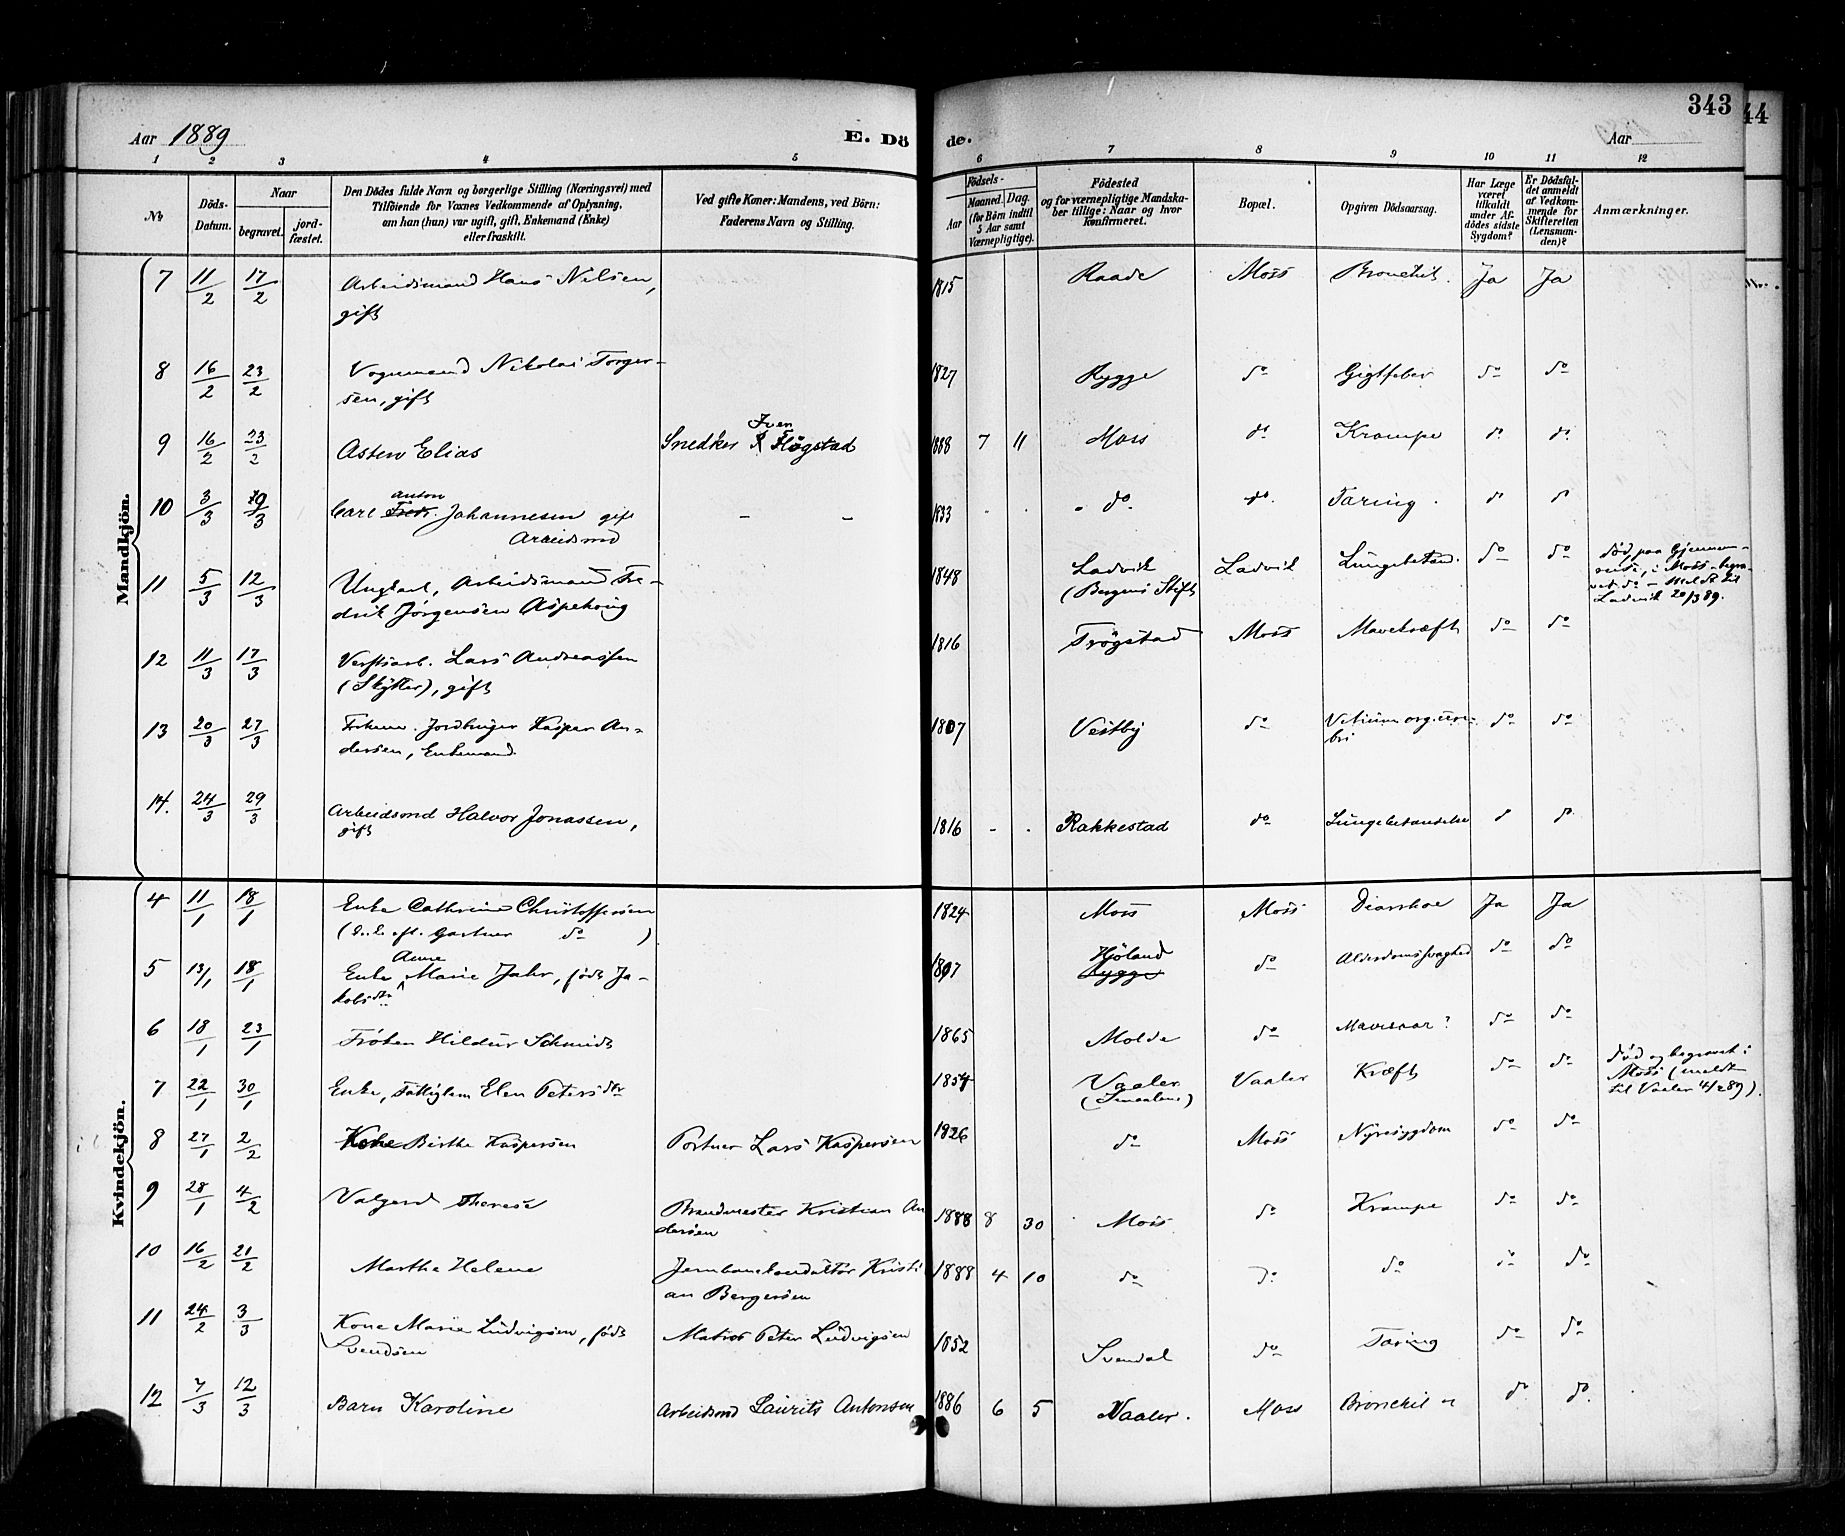 343
44
Aar 1889
E. Dö
de.
Aar
1 2 3 4 5 6 7 8 9 10 11 12
No
Döds-Datum.
Naar
begravet.
jord-fæstet.
Den Dödes fulde Navn og borgerlige Stilling (Næringsvei) med
Tilföiende for Voxnes Vedkommende af Oplysning,
om han (hun) var ugift, gift, Enkemand (Enke)
eller fraskilt.
Ved gifte Koner: Mandens, ved Börn:
Faderens Navn og Stilling.
Födsels-
Aar
Maaned. Dag.
(for Börn indtil
5 Aar samt
Værnepligtige).
Födested
og for værnepligtige Mandska-
ber tillige: Naar og hvor
konfirmeret.
Bopæl.
Opgiven Dödsaarsag.
Har Læge
været
tilkaldt
under Af-
dödes sidste
Sygdom?
Er Dödsfal-
det anmeldt
af Vedkom-
mende for
Skifteretten
(Lensman-
den)?
Anmærkninger.
Mandkjön.
7 11/2 17/2 Arbeidsmand Hans Nilsen, 1815 Raade Moss Bronchit. Ja Ja
gift
8 16/2 23/2 Vognmand Nikolai Torger- 1827 Rygge do Gigtfeber do do
sen, gift
Iven
9 16/2 23/2 Asten Elias Snedker Høgstad 1888 7 11 Moss do Krampe do do
Anton
10 3/3 /3 Carl Fredr. Johannesen gift - - 1833 do do Tæring. do do
Arbeidsmd
11 5/3 12/3 Ungkarl, Arbeidsmand Fre- 1848 Ladvik Ladvik Lungebetænd. do do død paa Gjennem-
drik Jørgensen Aspehoug (Bergens Stift reise, i Moss - begra-
vet do - meldt til
Ladvik 20/3 89.
12 11/3 17/3 Verftsarb. Lars Andreassen 1816 Trøgstad Moss Mavekræft do do
(Skytter), gift
13 20/3 27/3 Jordbruger Kasper An- 1807 Vestby do Vitium org. cere- do do
dersen, Enkemand. bri
14. 24/3 29/3 Arbeidsmd Halvor Jonassen, 1816 - - Rakkestad do Lungebetændelse do do
gift
Kvindekjön.
4 11/1 18/1 Enke Cathrine Christoffersen 1824 Moss Moss Diarrhoe Ja Ja
( eft. Gartner do )
Anne
5 13/1 18/1 Enke Marie Jahr, født Ja- 1807 Hjöland do Alderdomssvaghed do do
kobsdtr Rygge
6 18/1 23/1 Frøken Hildur Schmidt 1865 Molde do Mavesaar? do do
7 22/1 30/1 Enke, Fattiglem Elen Petersdtr 1854 Vaaler Vaaler Kræft do do død og begravet i
Moss (meldt
til Vaaler 4/2 89).
8 27/1 2/2 Kone Birthe Kaspersen Portner Lars Kaspersen 1826 do Moss Nyresygdom do do
9 28/1 4/2 Valgerd Therese Brandmester Kristian An 1888 8 30 Moss do Krampe do do
dersen
10 16/2 21/2 Marthe Helene Jernbanekonduktør Kristi 1888 4 10 do do do do do
an Bergersen
11 24/2 3/3 Kone Marie Ludvigsen, født Matros Peter Ludvigsen 1852 Svendal do Tæring do do
Svendsen
12 7/3 12/3 Barn Karoline Arbeidsmd Laurits Antonsen 1886 6 5 Vaaler. Moss Bronchit do do.